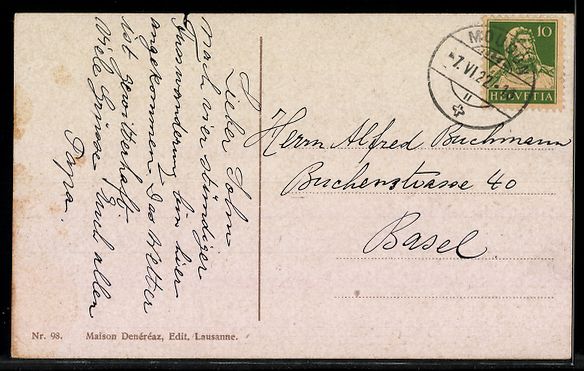 Lieber Sohn
Nach vier stündiger
Fusswanderung bin hier
angekommen. Das Wetter
ist gewitterhaft.
Viele Grüsse Euch allen
Papa.
10
HELVETIA
7.VI.22.
Herrn Alfred Buchmann
Buchenstrasse 40
Basel
Nr. 98. Maison Denéréaz, Edit. Lausanne.